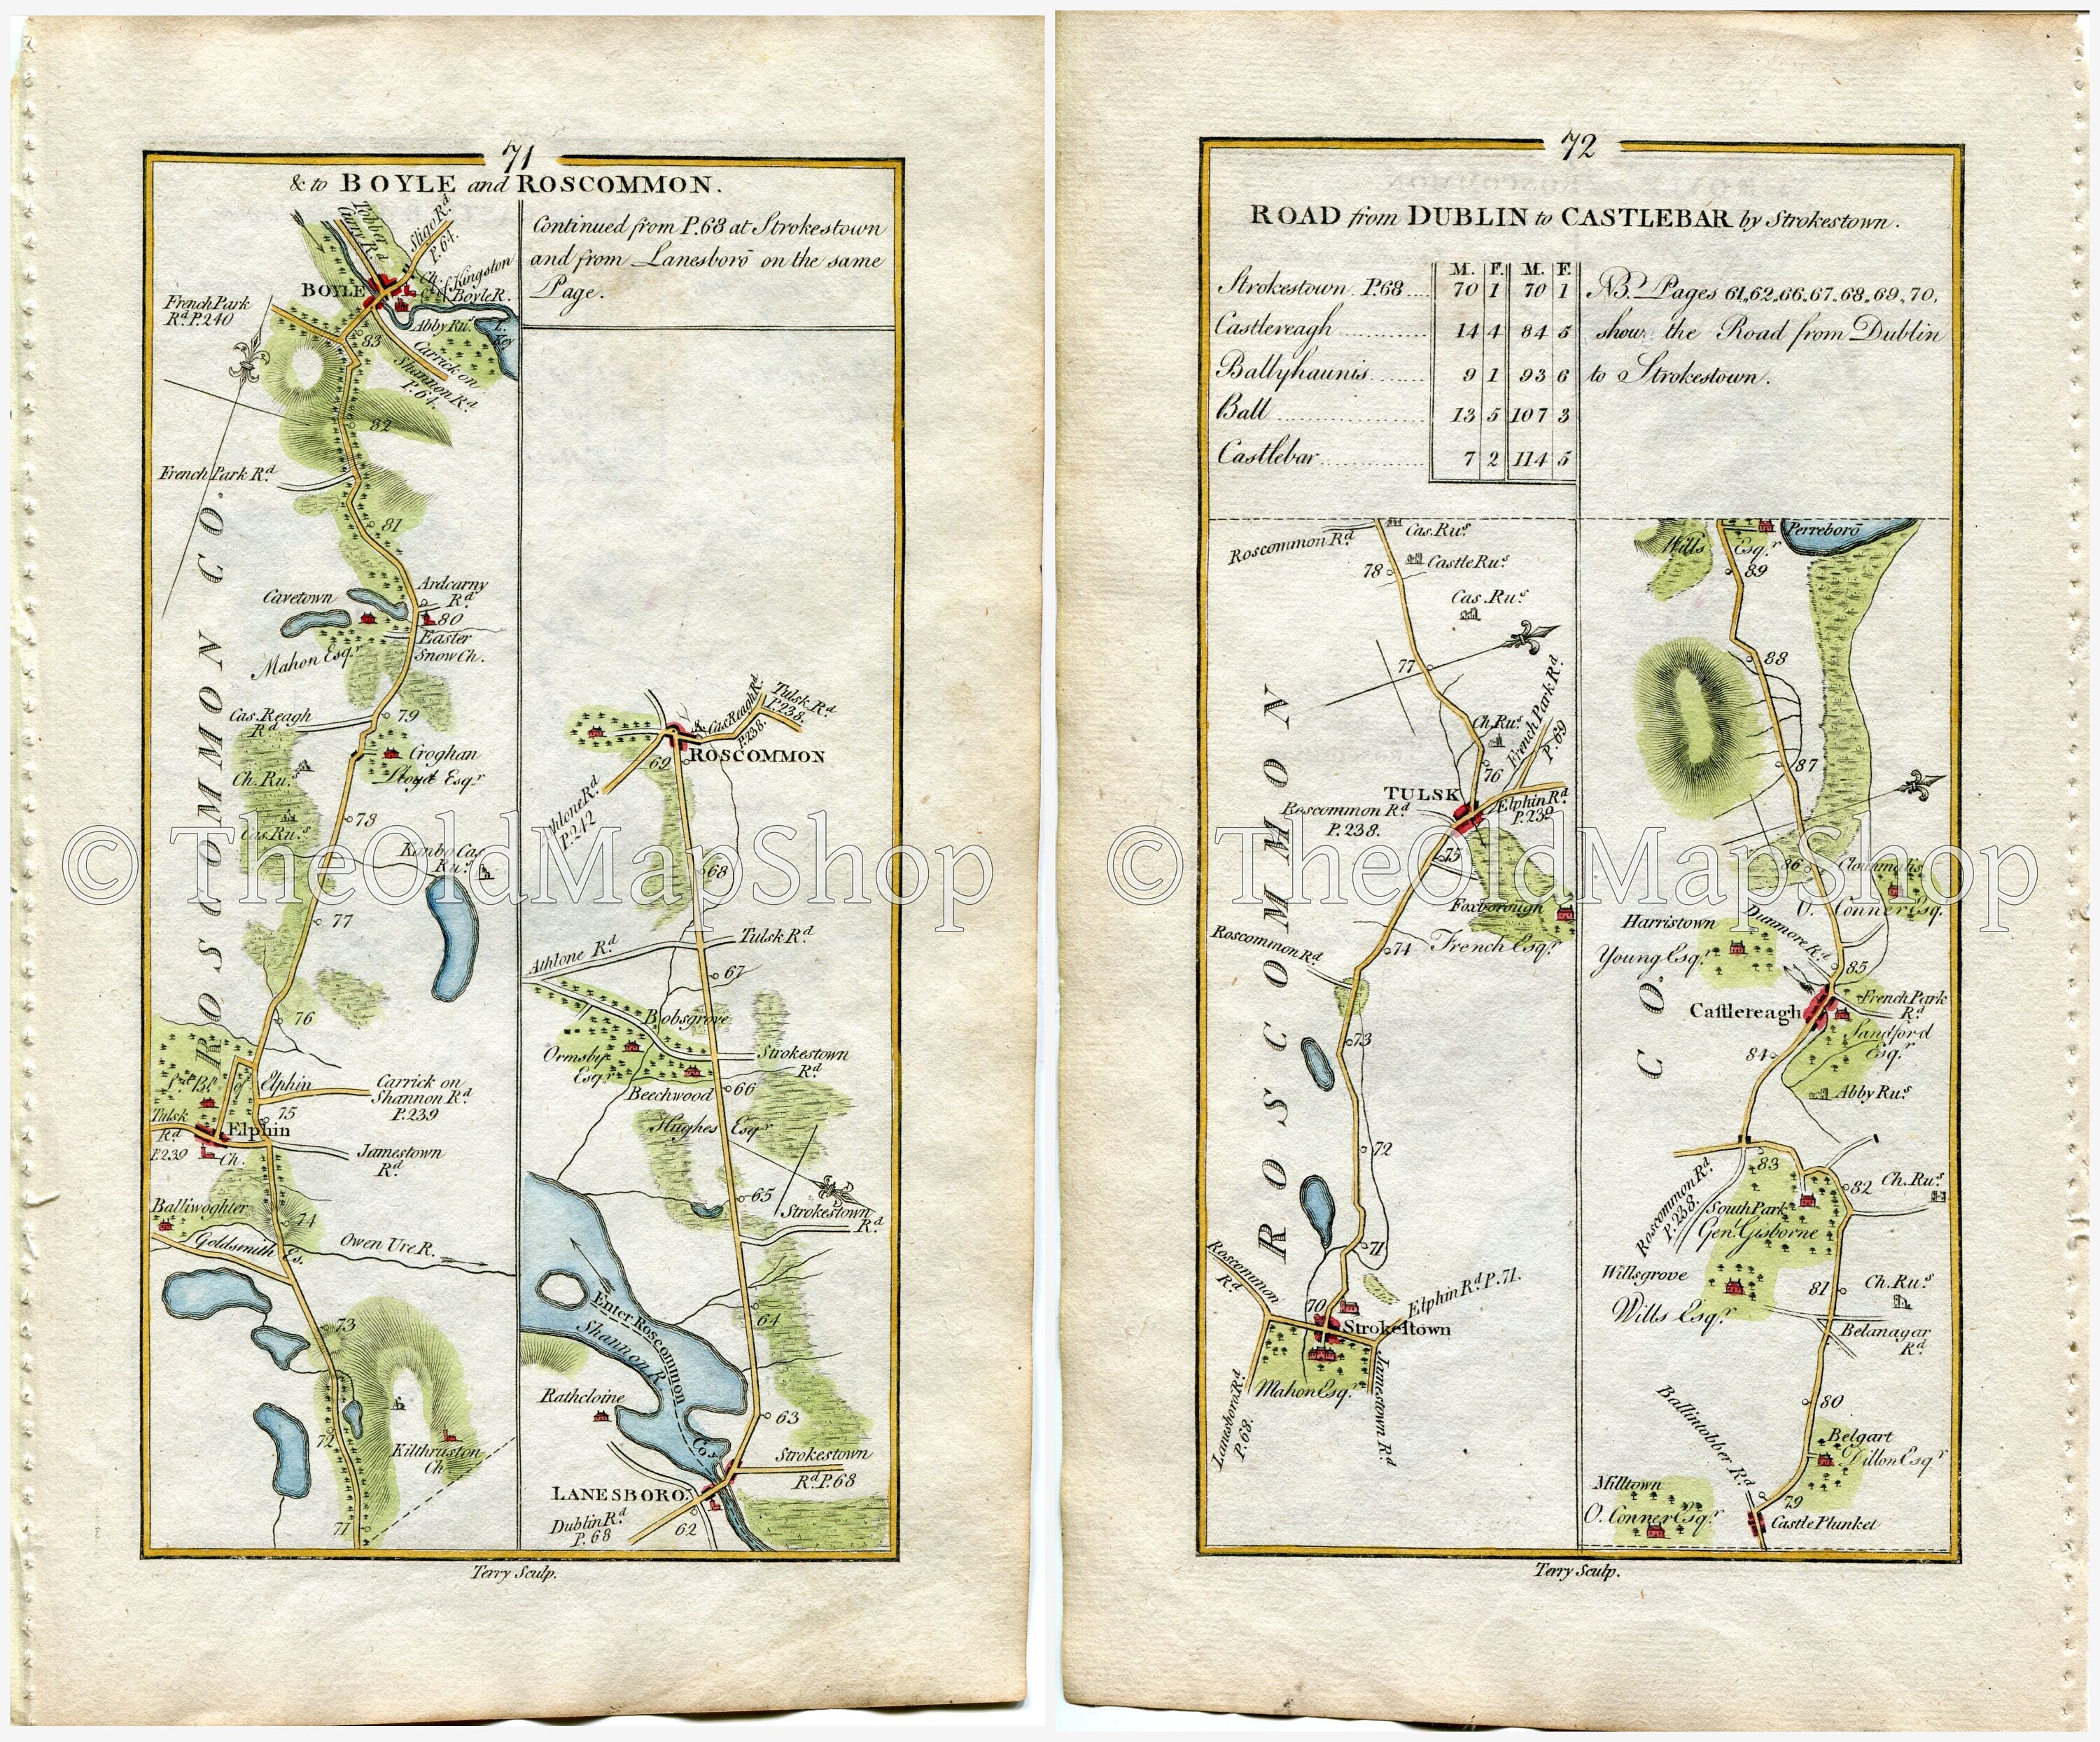 71
& to BOYLE and ROSCOMMON.
Continued from P.68 at Strokestown
and from Lanesborō on the same
Page.
Tobber
Curry Rd.
Sligo Rd.
P.64.
BOYLE
Ch.
Kingston
Boyle R.
Abby Rus.
L.
Key
French Park
Rd. P.240
83
Carrick on
Shannon Rd.
P.64.
82
French Park Rd.
81
ROSCOMMON CO.
Ardcarny
Rd.
Cavetown
80
Easter
Snow Ch.
Mahon Esqr.
Cas. Reagh
Rd.
79
Croghan
Lloyd Esqr.
Ch. Rus.
78
Cas. Rus.
Kanbo Cas.
Rus.
77
76
Elphin
Carrick on
Shannon Rd.
P.239
75
Tulsk
Rd.
P.239
Elphin
Ch.
Jamestown
Rd.
Balliwoghter
74
Goldsmith Es.
Owen Ure R.
73
72
Kilthruston
Ch
71
Tulsk Rd.
P.238.
Cas Reagh Rd.
P.238.
69
ROSCOMMON
Athlone Rd.
P.242
68
Tulsk Rd.
Athlone Rd.
67
Bobsgrove
Ormsby
Esqr.
Strokestown
Rd.
Beechwood
66
Hughes Esqr.
65
Strokestown
Rd.
Enter Roscommon
Co.
Shannon R.
64
Rathcloine
63
Strokestown
Rd. P.68
LANESBORO.
Dublin Rd.
P.68
62
Terry Sculp.
72
ROAD from DUBLIN to CASTLEBAR by Strokestown.
M. F. M. F.
Strokestown P.68 .... 70 1 70 1
Castlereagh ............ 14 4 84 5
Ballyhaunis ........ 9 1 93 6
Ball ................ 13 5 107 3
Castlebar ............ 7 2 114 5
NB. Pages 61,,62,,66,,67,,68,,69,,70,
show the Road from Dublin
to Strokestown.
Roscommon Rd.
Cas. Rus.
Castle Rus.
78
Cas. Rus.
77
Ch. Rus.
French Park Rd.
P.69
76
TULSK
Roscommon Rd.
P.238.
Elphin Rd.
P.239
75
Foxborough
French Esqr.
74
Roscommon Rd.
73
ROSCOMMON
72
71
Roscommon
Rd.
70
Elphin Rd. P.71.
Strokestown
Mahon Esqr.
Lanesboro Rd.
P.68.
Jamestown Rd.
Wills Esqr.
Perreborō
89
88
87
86
Clonmalis
O. Conner Esq.
Harristown
Young Esqr.
Dunmore Rd.
85
Castlereagh
French Park
Rd.
Sandford
Esqr.
84
CO.
Abby Rus.
83
Roscommon Rd.
P.238.
82
Ch. Rus.
South Park
Gen. Gisborne
Willsgrove
Wills Esqr.
81
Ch. Rus.
Belanagar
Rd.
80
Ballintobber Rd.
Belgart
Dillon Esqr.
Milltown
O. Conner Esqr.
79
Castle Plunket
Terry Sculp.
© TheOldMapShop
© TheOldMapShop